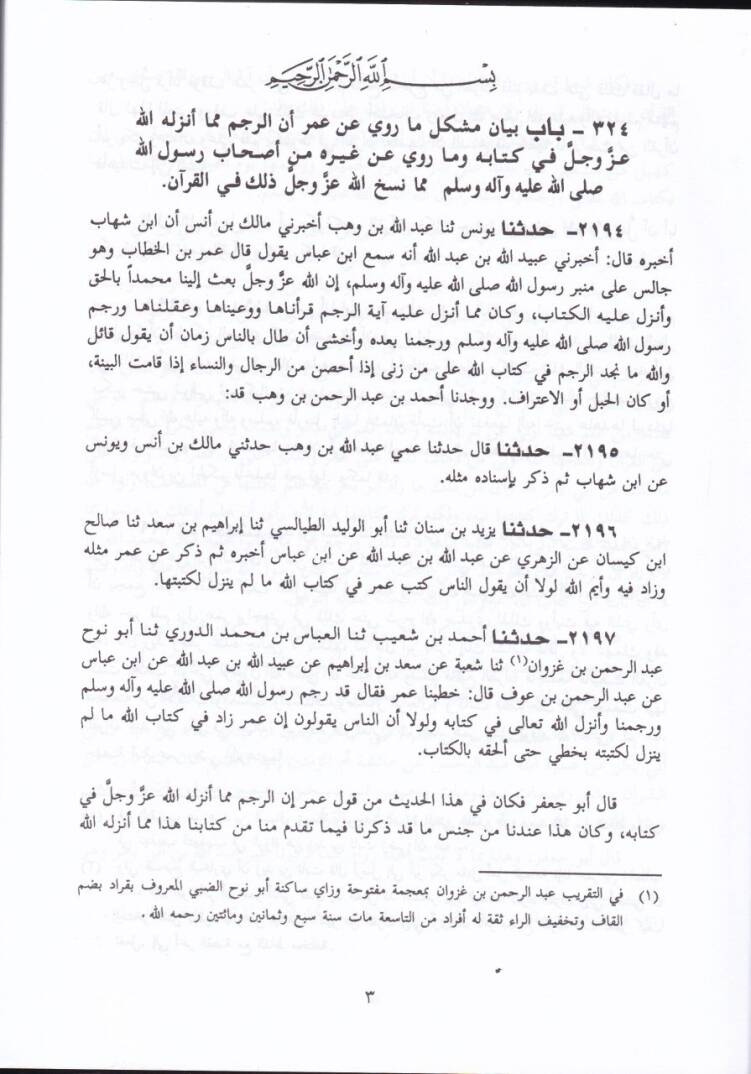 بسم الله الرحمن الرحيم
٣٢٤ – باب بيان مشكل ما روي عن عمر أن الرجم مما أنزله الله
عزَّ وجلَّ في كتابه وما روي عن غيره من أصحاب رسول الله
صلى الله عليه وآله وسلم مما نسخ الله عزَّ وجلَّ ذلك في القرآن.
٢١٩٤- حدثنا يونس ثنا عبد الله بن وهب أخبرني مالك بن أنس أن ابن شهاب
أخبره قال: أخبرني عبيد الله بن عبد الله أنه سمع ابن عباس يقول قال عمر بن الخطاب وهو
جالس على منبر رسول الله صلى الله عليه وآله وسلم، إن الله عزَّ وجلَّ بعث إلينا محمداً بالحق
وأنزل عليه الكتاب، وكان مما أنزل عليه آية الرجم قرأناها ووعيناها وعقلناها ورجم
رسول الله صلى الله عليه وآله وسلم ورجمنا بعده وأخشى أن طال بالناس زمان أن يقول قائل
والله ما نجد الرجم في كتاب الله على من زنى إذا أحصن من الرجال والنساء إذا قامت البينة،
أو كان الحبل أو الاعتراف. ووجدنا أحمد بن عبد الرحمن بن وهب قد:
٢١٩٥- حدثنا قال حدثنا عمي عبد الله بن وهب حدثني مالك بن أنس ويونس
عن ابن شهاب ثم ذكر بإسناده مثله.
٢١٩٦- حدثنا يزيد بن سنان ثنا أبو الوليد الطيالسي ثنا إبراهيم بن سعد ثنا صالح
ابن كيسان عن الزهري عن عبد الله بن عبد الله عن ابن عباس أخبره ثم ذكر عن عمر مثله
وزاد فيه وأيم الله لولا أن يقول الناس كتب عمر في كتاب الله ما لم ينزل لكتبتها.
٢١٩٧- حدثنا أحمد بن شعيب ثنا العباس بن محمد الدوري ثنا أبو نوح
عبد الرحمن بن غزوان(١) ثنا شعبة عن سعد بن إبراهيم عن عبيد الله بن عبد الله عن ابن عباس
عن عبد الرحمن بن عوف قال: خطبنا عمر فقال قد رجم رسول الله صلى الله عليه وآله وسلم
ورجمنا وأنزل الله تعالى في كتابه ولولا أن الناس يقولون إن عمر زاد في كتاب الله ما لم
ينزل لكتبته بخطي حتى ألحقه بالكتاب.
قال أبو جعفر فكان في هذا الحديث من قول عمر إن الرجم مما أنزله الله عزَّ وجلَّ في
كتابه، وكان هذا عندنا من جنس ما قد ذكرنا فيما تقدم منا من كتابنا هذا مما أنزله الله
(١) في التقريب عبد الرحمن بن غزوان بمعجمة مفتوحة وزاي ساكنة أبو نوح الضبي المعروف بقراد بضم
القاف وتخفيف الراء ثقة له أفراد من التاسعة مات سنة سبع وثمانين ومائتين رحمه الله.
٣